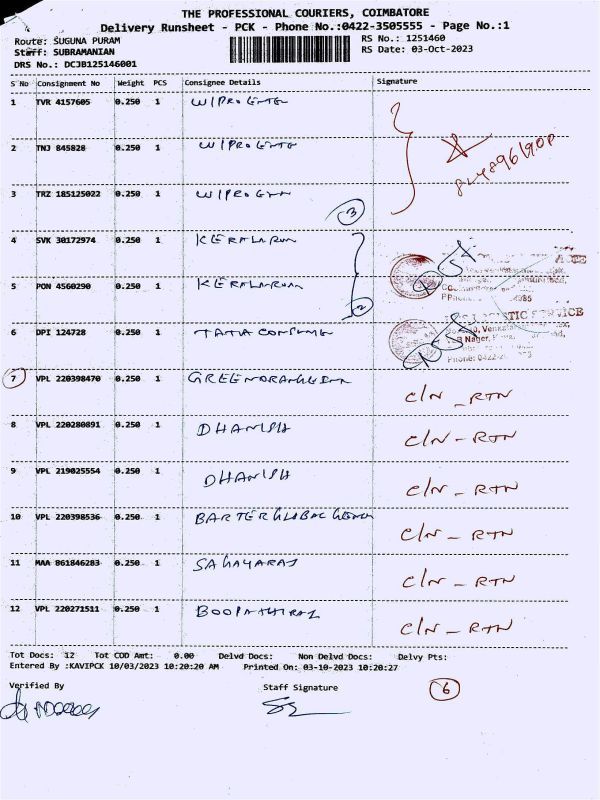 THE PROFESSIONAL COURIERS, COIMBATORE
Delivery Runsheet - PCK - Phone No.:0422-3505555 - Page No.:1
Route: SUGUNA PURAM RS No.: 1251460
Staff: SUBRAMANIAN RS Date: 03-Oct-2023
DRS No.: DCJB125146001
S No Consignment No Weight PCS Consignee Details Signature
1 TVR 4157605 0.250 1 WIPRO
2 TNJ 845828 0.250 1 WIPRO
3 TRZ 185125022 0.250 1 WIPRO
3
4 SVK 30172974 0.250 1 KERALARUN
5 PON 4560290 0.250 1 KERALARUN
2
6 DPI 124728 0.250 1 TATA CONSUME
7 VPL 220398470 0.250 1 C/N - RTN
8 VPL 220280891 0.250 1 DHANISH C/N - RTN
9 VPL 219025554 0.250 1 DHANISH C/N - RTN
10 VPL 220398536 0.250 1 BARTER GLOBAL C/N - RTN
11 MAA 861846283 0.250 1 SAHAYARAJ C/N - RTN
12 VPL 220271511 0.250 1 BOOPATHIRAJ C/N - RTN
Tot Docs: 12 Tot COD Amt: 0.00 Delvd Docs: Non Delvd Docs: Delvy Pts:
Entered By :KAVIPCK 10/03/2023 10:20:20 AM Printed On: 03-10-2023 10:20:27
Verified By Staff Signature 6